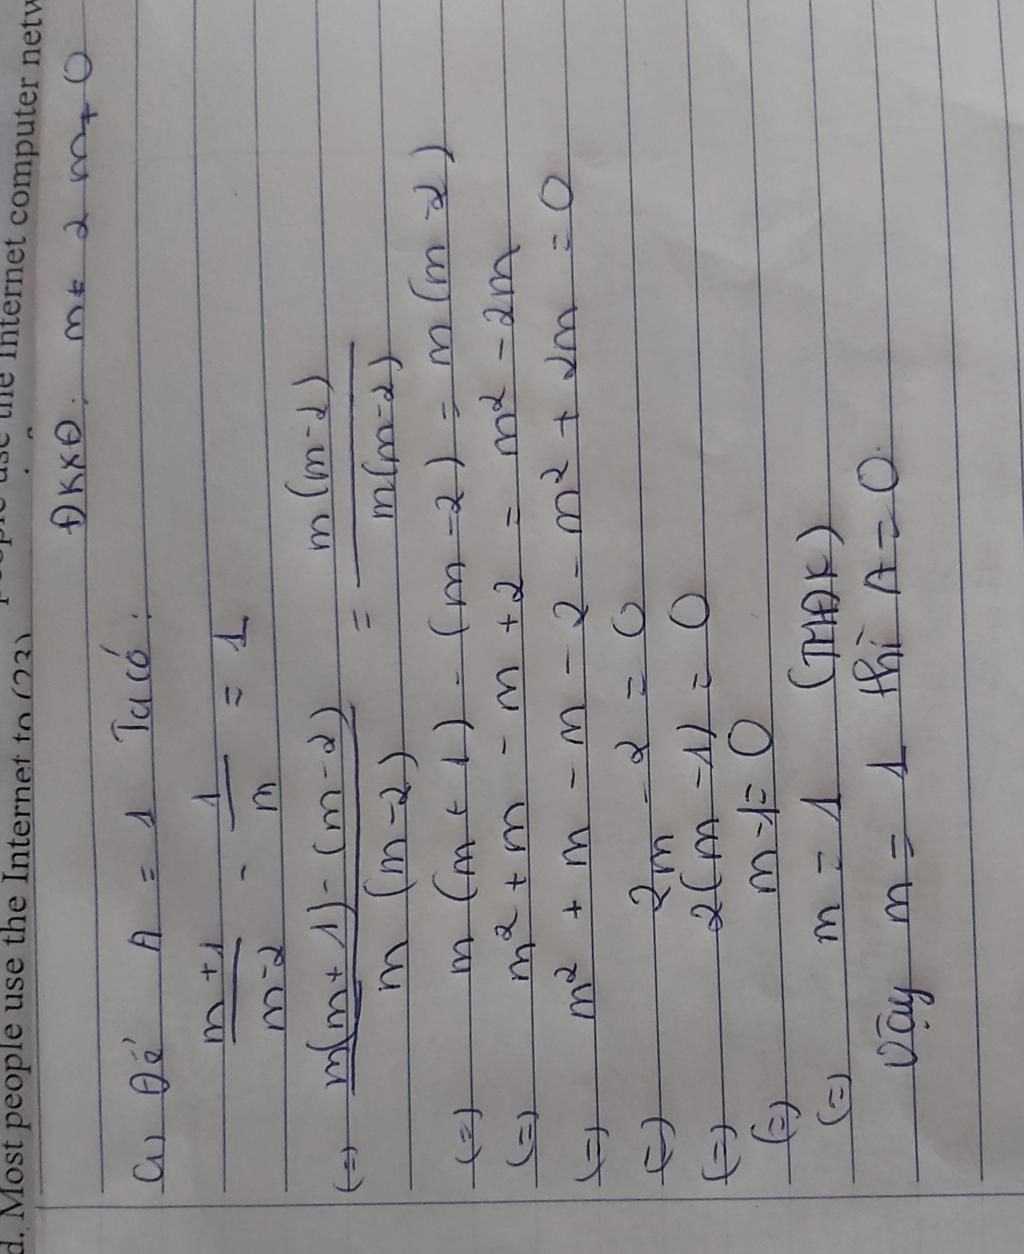 d. Most people use the Internet to (23) people use the Internet computer netw
ĐKXĐ: m ≠ 2 m ≠ 0
a) Để A = 1 Ta có:
m+1/m-2 - 1/m = 1
(=) m(m+1) - (m-2)/m(m-2) = m(m-2)/m(m-2)
(=) m(m+1) - (m-2) = m(m-2)
(=) m² + m - m + 2 = m² - 2m
(=) m² + m - m - 2 - m² + 2m = 0
(=) 2m - 2 = 0
(=) 2(m-1) = 0
(=) m-1 = 0
(=) m = 1 (TMĐK)
Vậy m = 1 thì A = 0.